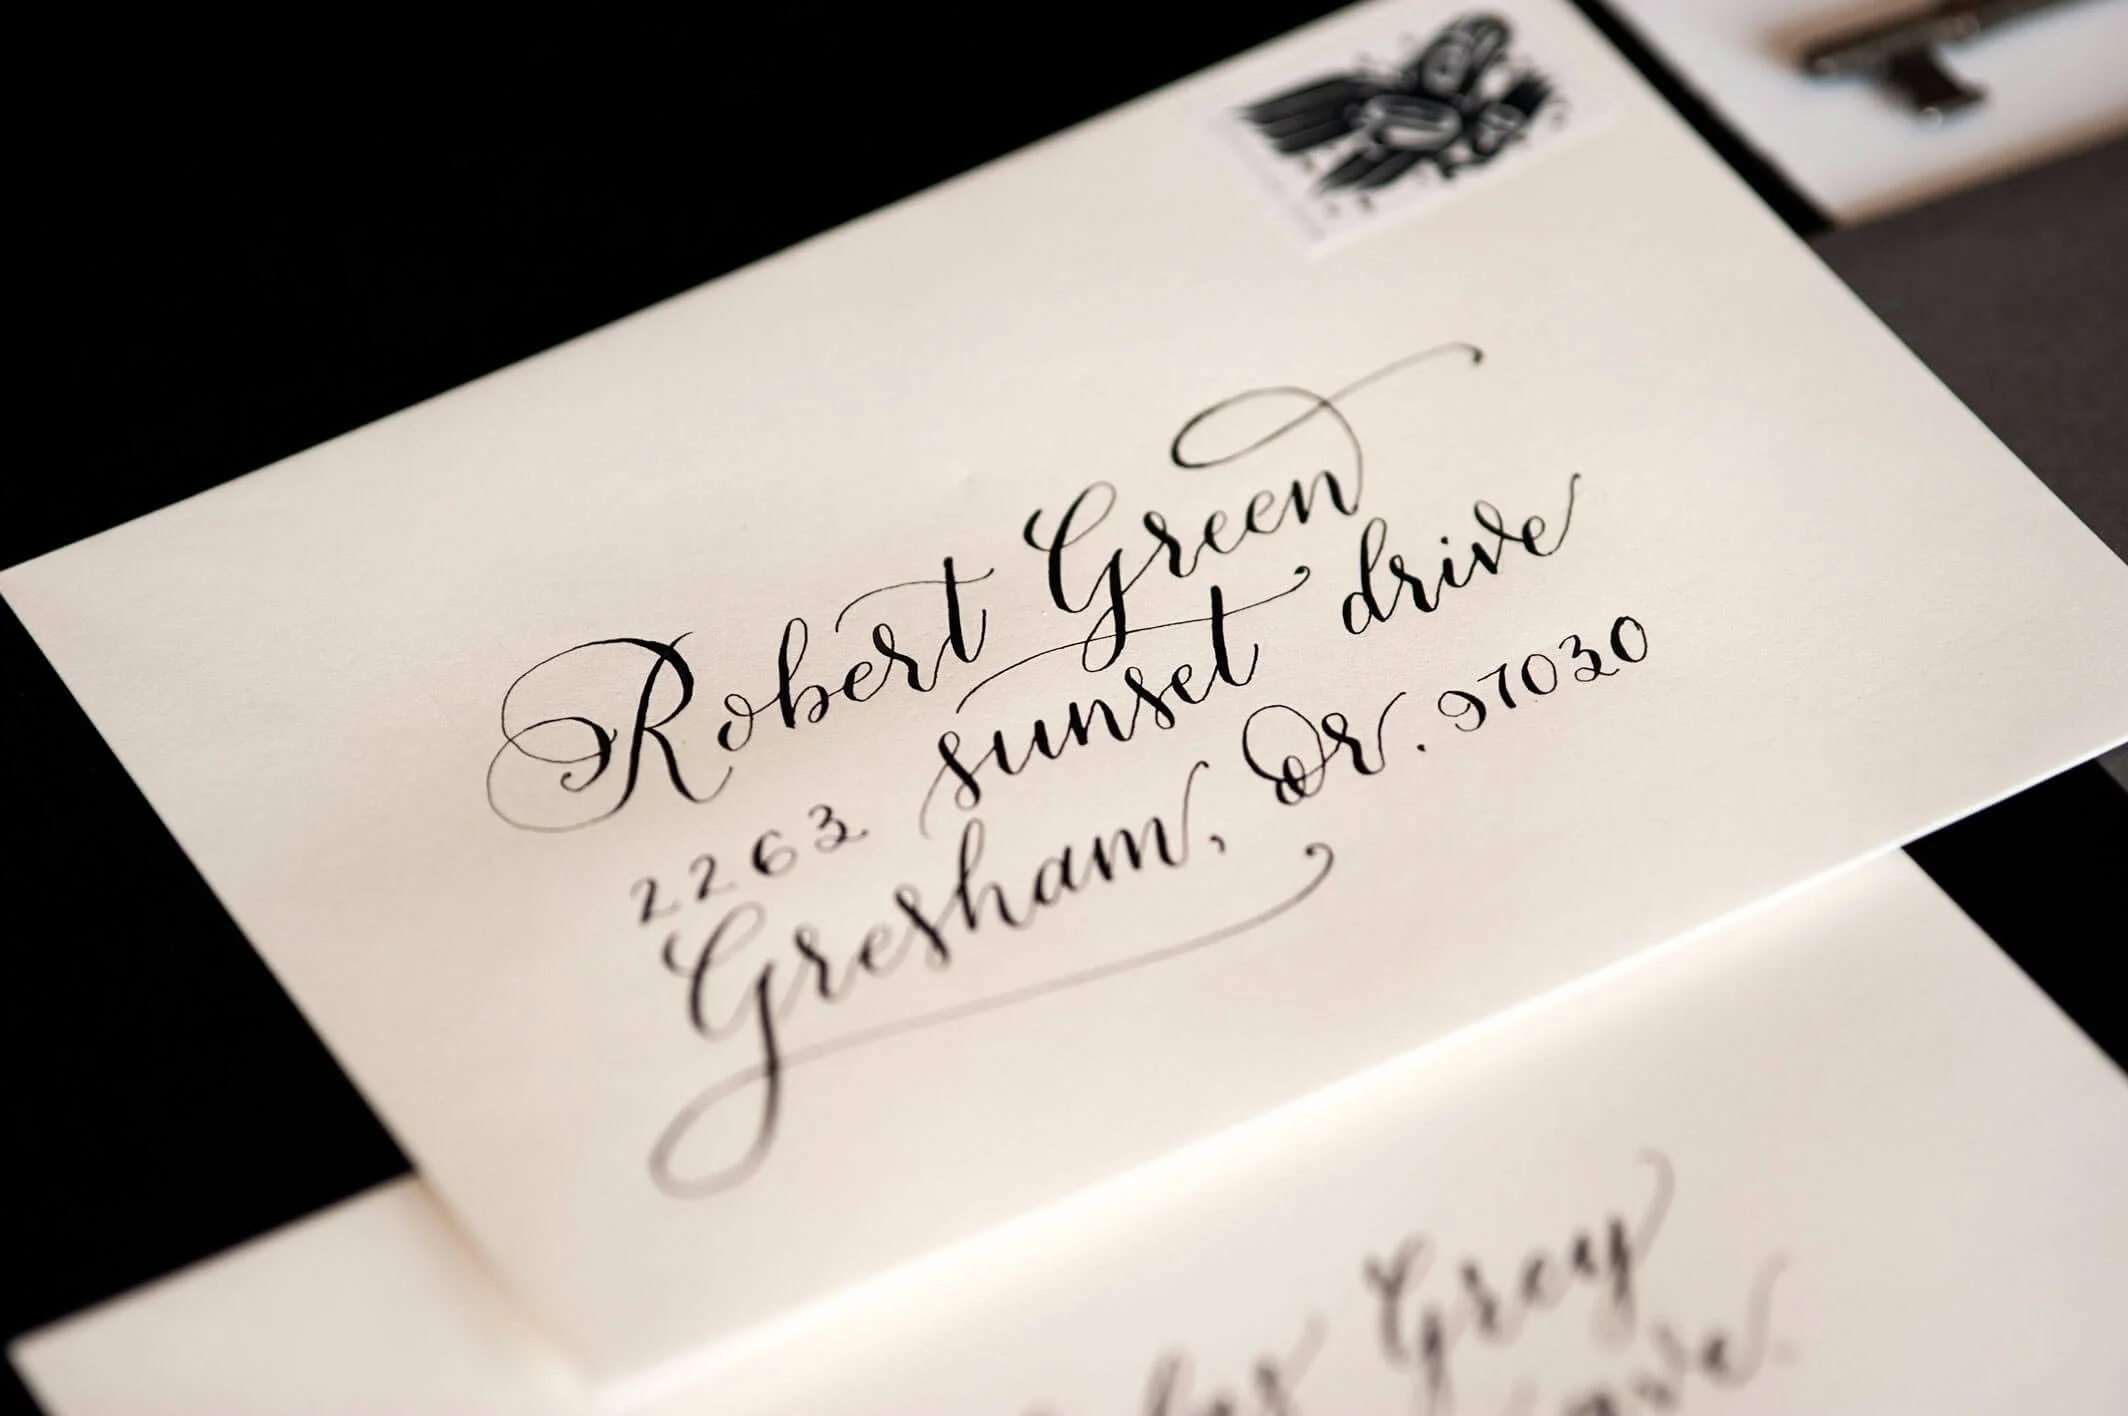 Robert Green
2263 sunset drive
Gresham, Or. 97030
Grey